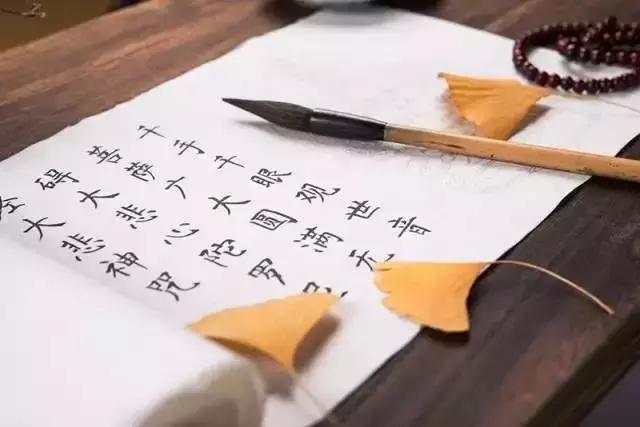 千手千眼观世音
菩萨广大圆满无
碍大悲心陀罗尼
大悲神咒